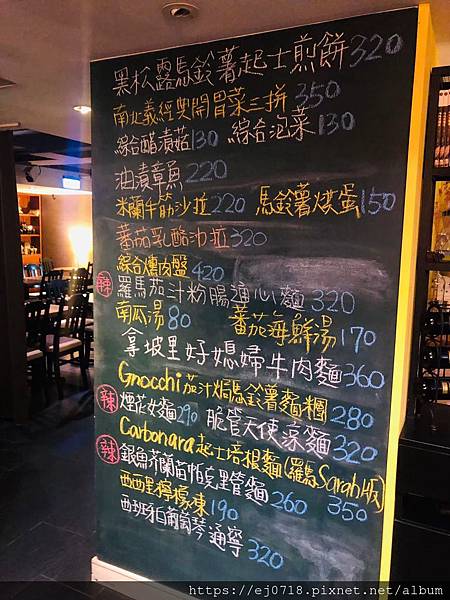 黑松露馬鈴薯起士煎餅320
南北義經典開胃菜三拼350
綜合醋漬菇130 綜合泡菜130
油漬章魚220
米蘭牛筋沙拉220 馬鈴薯烘蛋150
蕃茄乳酪沙拉320
綜合燻肉盤420
辣 羅馬茄汁粉腸通心麵320
南瓜湯80 蕃茄海鮮湯170
拿坡里好媳婦牛肉麵360
Gnocchi茄汁焗馬鈴薯麵糰280
辣 煙花女麵290 脆管天使涼麵320
Carbonara起士培根麵(羅馬Sarah版)350
辣 銀魚芥蘭苗帕克里管麵260
西西里檸檬凍190
西班牙白葡萄琴通寧320
https://ej0718.pixnet.net/album